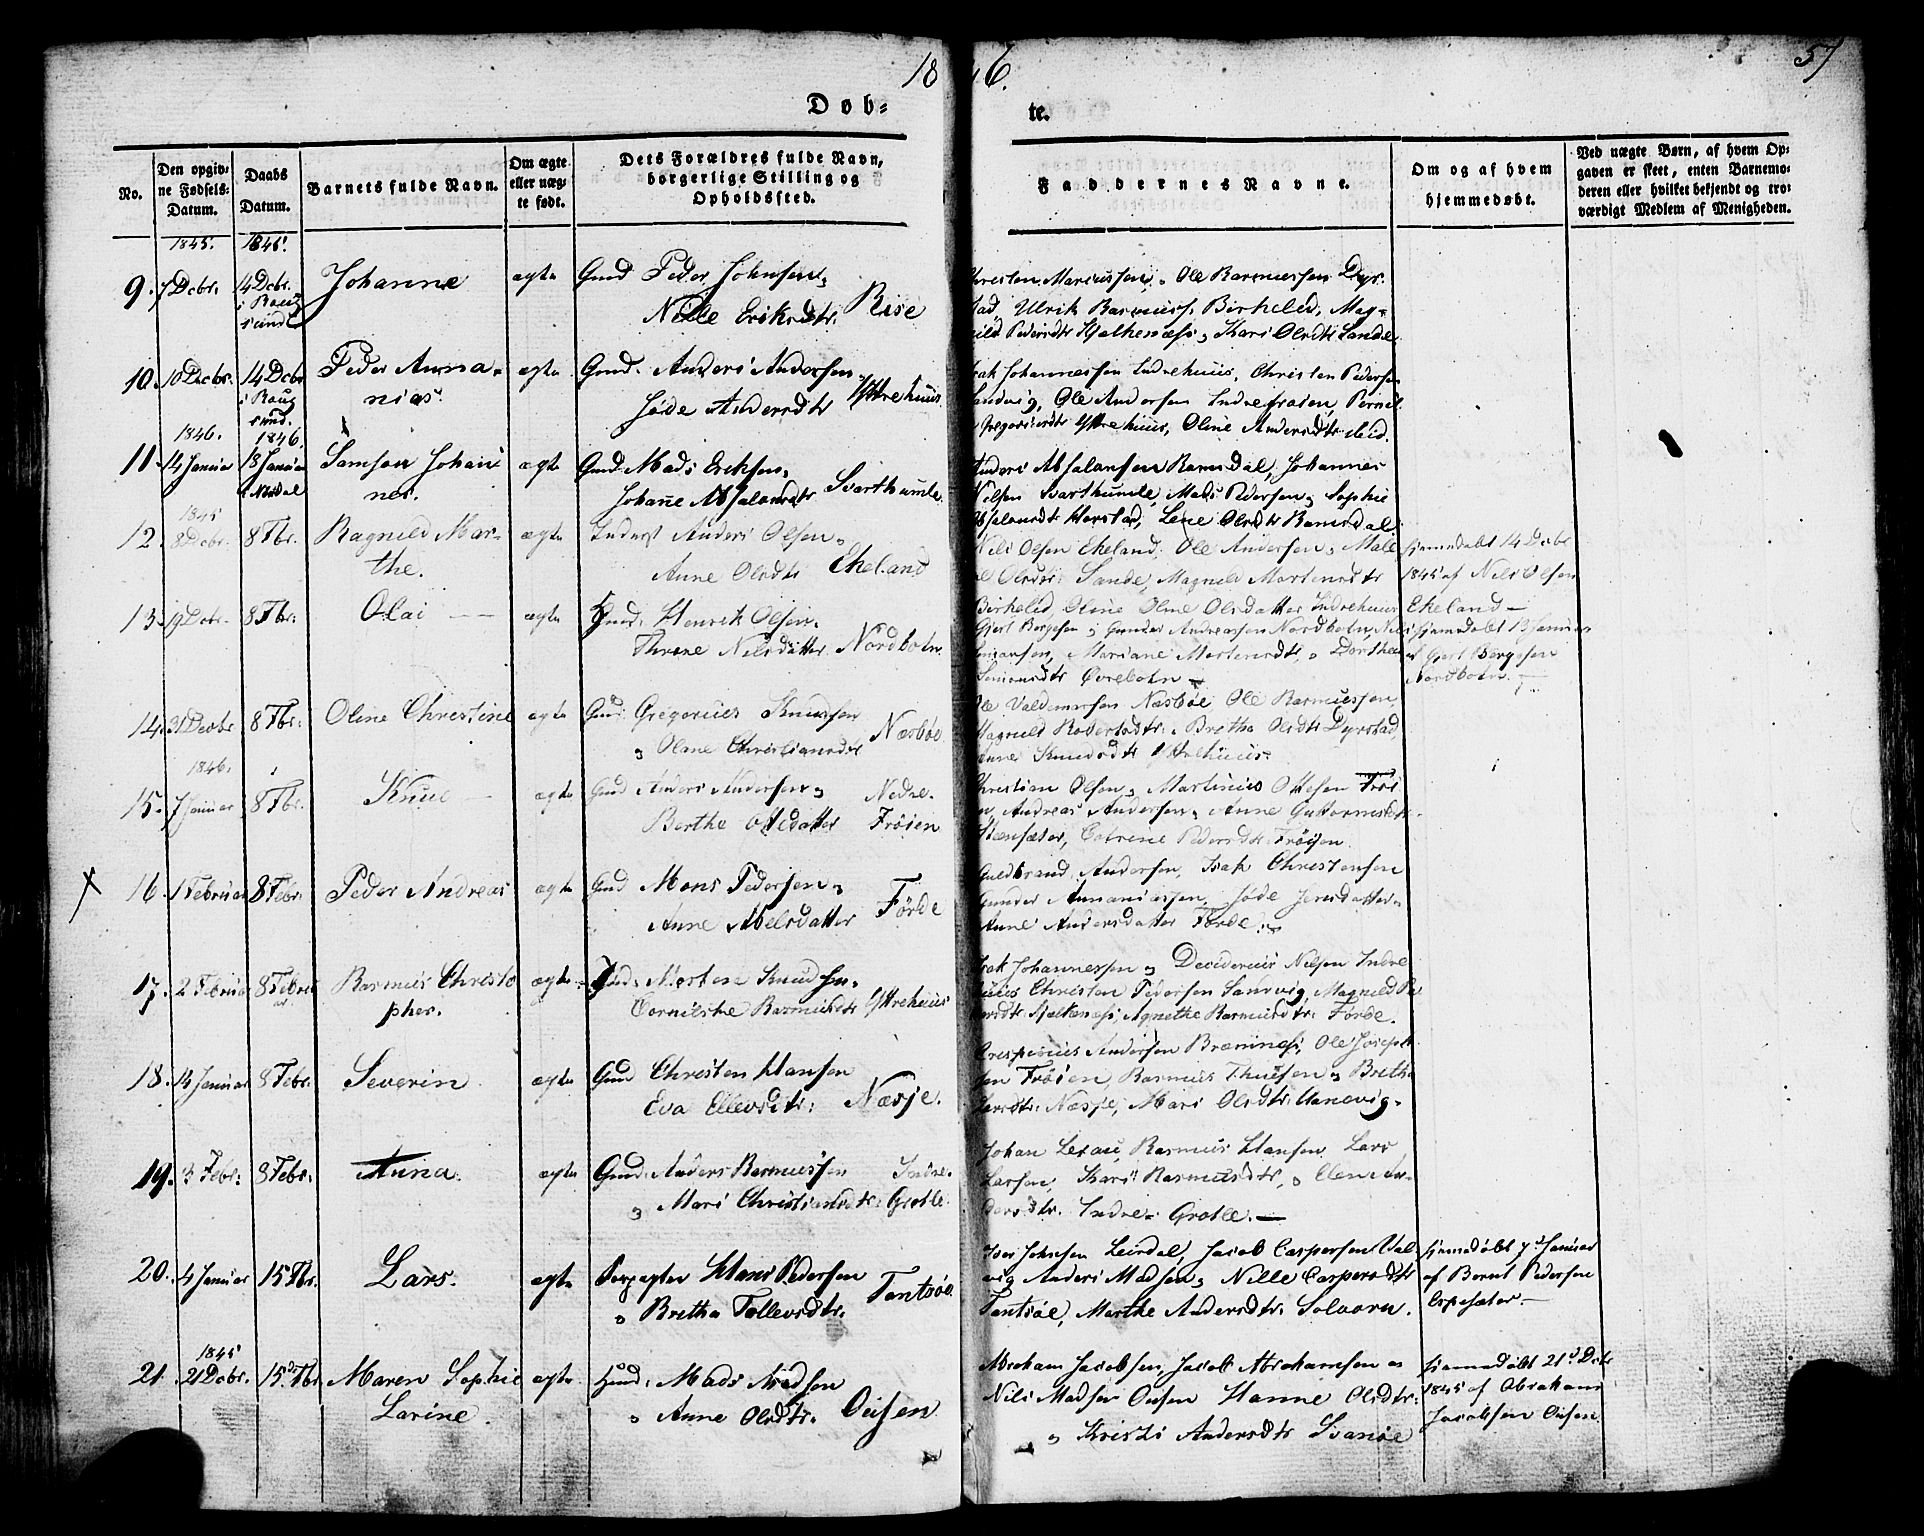 18 46. 57
Døb= te.
No.
Den opgiv=
ne Fødsels=
Datum.
Daabs
Datum.
Barnets fulde Navn.
Om ægte
eller uæg=
te født.
Dets Forældres fulde Navn,
borgerlige Stilling og
Opholdssted.
Faddernes Navne.
Om og af hvem
hjemmedøbt.
Ved uægte Børn, af hvem Op=
gaven er skeet, enten Barnemo=
deren eller hvilket bekjendt og tro=
værdigt Medlem af Menigheden.
1845. 1845.
9. 7 Dcbr. 14 Dcbr. Johanne ægte Gmd Peder Johnsen Rise
Nille Eriksdtr.
Christen Mariussen, Ole Rasmussen Dyr=
stad, Ulrik Rasmuss. Birkeled, Mag=
nild Pedersdtr Hjelkenæss, Kari Olsdtr Sande
10. 10 Decbr. 14 Dcbr Peder Anna= ægte Gmd. Anders Andersen Yttrehuus
nias. Jøde Andersdtr
Isak Johannessen Indrehuus, Christen Pedersen
Sandvig, Ole Andersen Indrefrøien, Pernil
Gregoriusdtr Yttrehuus, Oline Andersdtr
1846. 1846
11. 14 Januar 18 Januar Samson Johan ægte Gmd Mads Eriksen Svarthumle
nes. Johane Absalonsdtr
Anders Absalonsen Ramsdal, Johannes
Nilsen Svarthumle, Mads Pedersen, Sophie
Absalonsdtr Hovstad, Lene Olsdtr Ramsdal
1845
12. 8 Dcbr. 8 Fbr. Ragnild Mar= ægte Inderst Anders Olsen Ekeland
the. Anne Olsdtr
Nils Olsen Ekeland, Ole Andersen, Male
Olsdtr Sande, Magnild Mortensdtr
Birkeled, Oline Olsdatter Indrehuus
hjemmedøbt 14 Dcbr
1845 af Nils Olsen
Ekeland
13. 19 Dcbr. 8 Fbr. Olai ægte Huusd. Henrik Olsen Nordbotn
Threne Nilsdatter
Gjert Børgesen, Gunder Andreassen Nordbotn, Nils
Mariane Mortensdtr, Dorthea
Simonsdtr Øvrebotn
hjemmedøbt 13 Januar
af Gjert Børgesen
Nordbotn.
14. 31 Decbr 8 Fbr. Oline Christine ægte Gmd: Gregorius Knudsen Næsbøe
Oline Christiansdtr
Ole Valdemarsen Næsbøe Ole Rasmussen,
Magnild Robertsdtr. Bretha Olsdtr Dyrstad,
Anne Knudsdtr Yttrehuus.
1846.
15. 7 Januar 8 Fbr. Knud ægte Gmd Anders Andersen Nedre
Berthe Ottedatter Frøien
Christian Olsen, Martinus Ottesen Frøi
en, Andreas Andersen, Anne Guttormsdtr
Steensæter, Cathrine Pedersdtr Frøien.
16. 1 Februar 8 Febr: Peder Andreas ægte Gmd Mons Pedersen Førde
Anne Abelsdatter
Guldbrand Andersen, Isak Christensen
Gunder Annaniassen, Jøde Jensdatter
Anne Andersdatter Førde.
17. 2 Februar 8 Februar Rasmus Christo ægte Gmd. Morten Knudsen Yttrehuus
pher. Cornilske Rasmusdtr
Isak Johannessen, Desiderius Nilsen Indre
huus Christen Pedersen Sandvig, Magnild Pe
dersdtr Hjelkenæss, Agnethe Rasmusdtr. Førde.
18. 14 Januar 8 Febr. Severin ægte Gmd Christen Hansen Næsje.
Eva Ellevsdtr.
Crespinius Andersen Bremnes, Ole Joseph
sen Frøien, Rasmus Thuesen, Bretha
Larsdtr. Næsje, Mari Olsdtr. Hanevig.
19. 3 Febr: 8 Febr. Anna. ægte Gmd. Anders Rasmussen Indre
Mari Christiansdtr. Grotle.
Johan Lexau, Rasmus Hansen, Lars
Larsen, Kari Rasmusdtr, Elen An
dersdtr. Indre Grotle.
20. 4 Januar 15 Fbr. Lars. ægte Forpagter Hans Pedersen Tantsøe
Bretha Tollevsdtr.
Iver Johnsen Leirdal, Jacob Caspersen Val
vig Anders Madsen, Nille Caspersdtr
Tantsøe, Marthe Andersdtr. Solvorn.
hjemmedøbt 7d Januar
af Bernt Pedersen
Espesæter.
1845
21. 21 Dcbr. 15d Fbr. Maren Sophie ægte Huusd. Mads Madsen Ousen
Larine. Anne Olsdtr.
Abraham Jacobsen, Jacob Abrahamsen
Nils Madsen Ousen Hanne Olsdtr.
Kristi Andersdtr Svanøe
hjemmedøbt 21d Dcbr
1845 af Abraham
Jacobsen Ousen